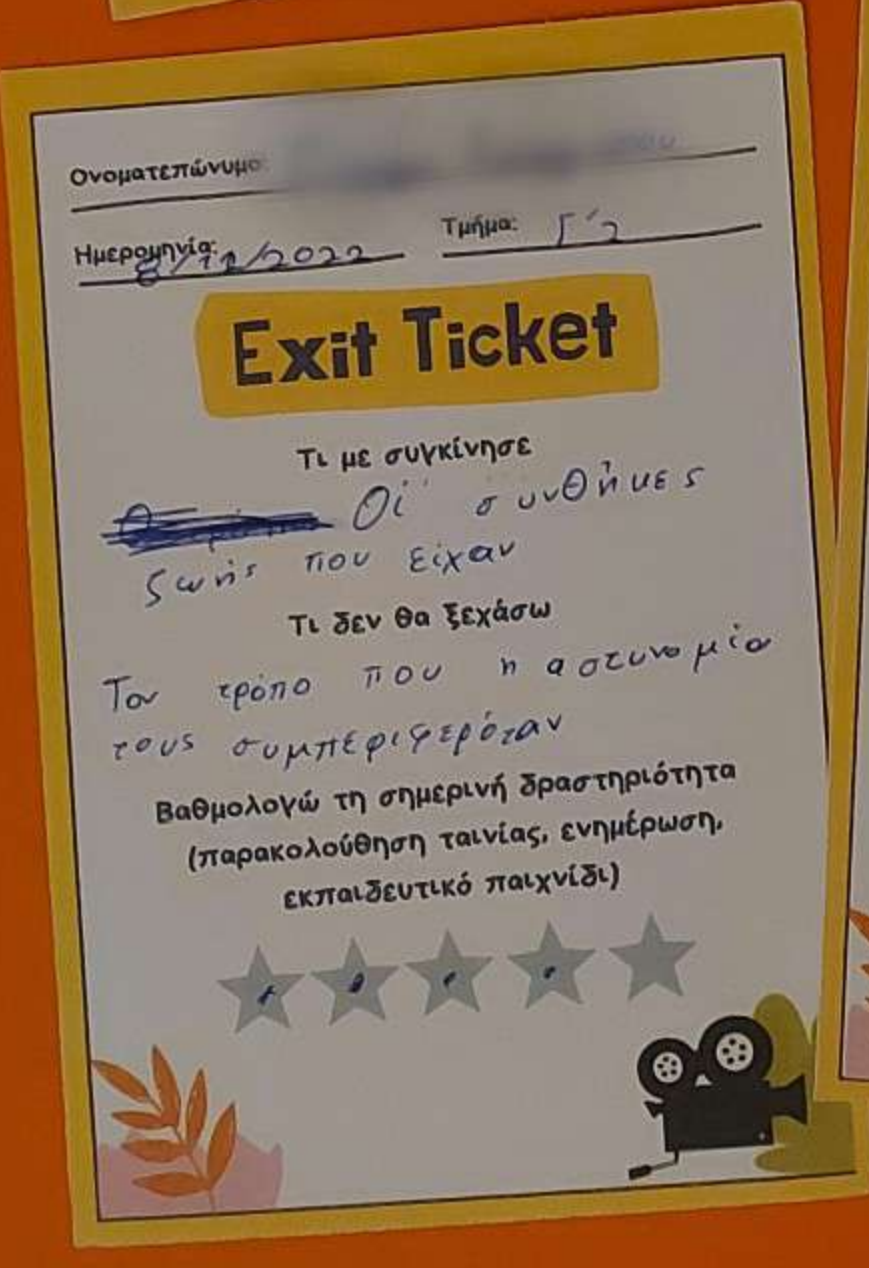 Ονοματεπώνυμο:
Ημερομηνία: 8/12/2022 Τμήμα: Γ'2
Exit Ticket
Τι με συγκίνησε
Οι συνθήκες
ζωής που είχαν
Τι δεν θα ξεχάσω
Τον τρόπο που η αστυνομία
τους συμπεριφερόταν
Βαθμολογώ τη σημερινή δραστηριότητα
(παρακολούθηση ταινίας, ενημέρωση,
εκπαιδευτικό παιχνίδι)